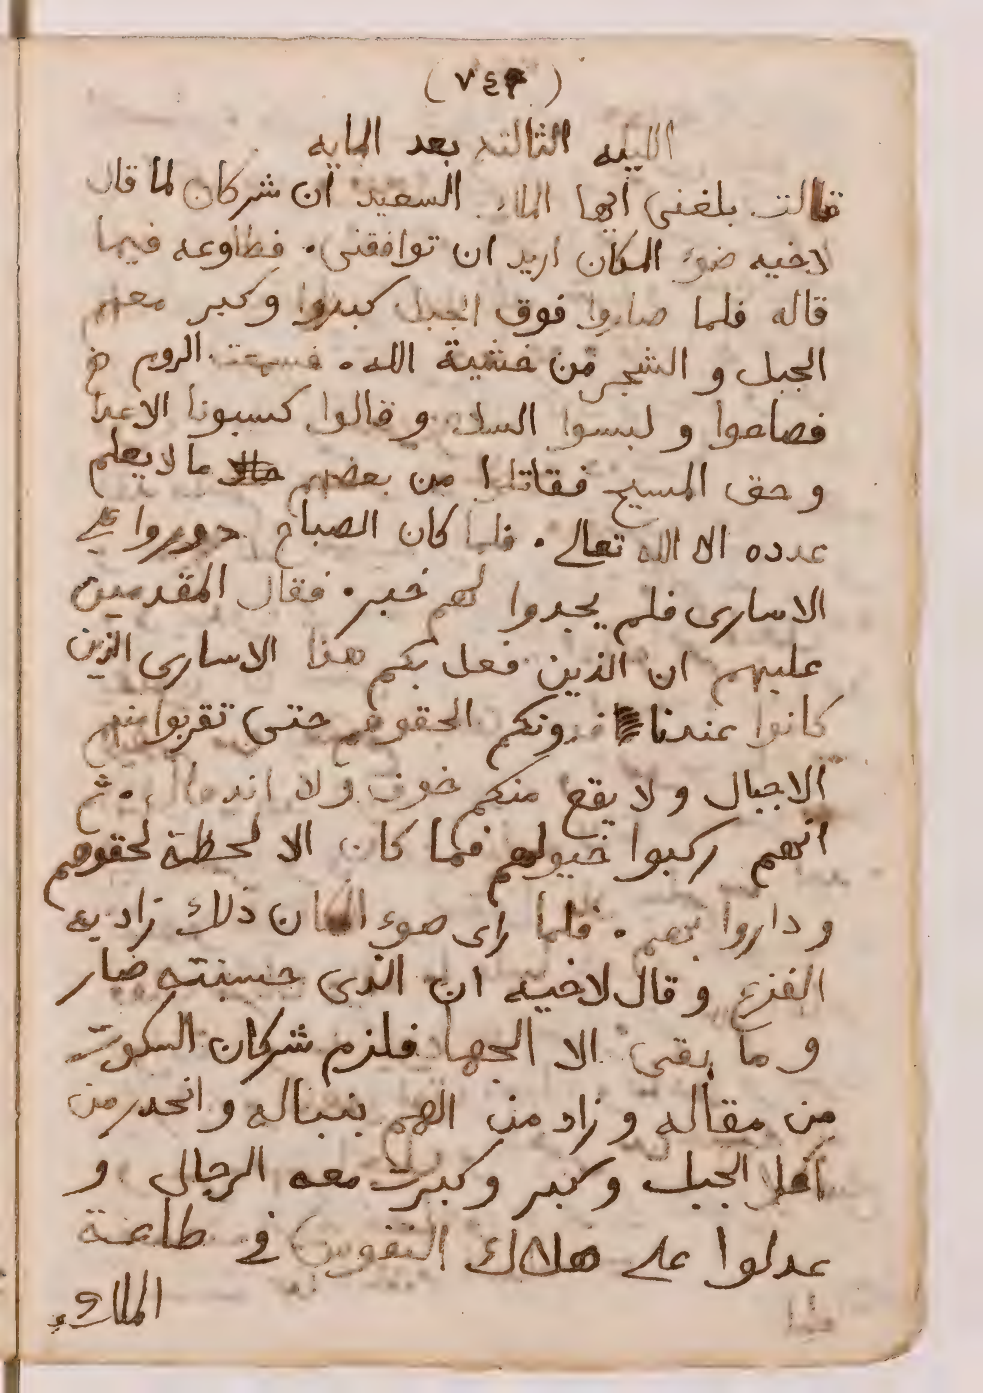 الليله الثالثه بعد المايه
قالت بلغنى ايها الملك السعيد ان شركان لما قال
لاخيه ضوء المكان اريد ان توافقنى. فطاوعه فيما
قاله فلما صاروا فوق الجبل كبروا وكبر معهم
الجبل و الشجر من خشية الله. فسمعت الروم
فصاحوا و لبسوا السلاح و قالوا كسبونا الاعدا
و حق المسيح فقاتلوا من بعضهم ما لا يعلم
عدده الا الله تعالى. فلما كان الصباح دوروا على
الاسارى فلم يجدوا لهم خبر. فقال المقدمين
عليهم ان الذين فعل بكم هذا الاسارى الذين
كانوا عندنا فدونكم الحقوهم حتى تقربوا منهم
الاجبال و لا يقع منكم خوف ولا. ثم
انهم ركبوا خيولهم فما كان الا لحظة لحقوهم
و داروا بهم. فلما راى ضوء المكان ذلك زاد به
الفزع و قال لاخيه ان الذى حسبته صار
و ما بقى الا الجهاد فلزم شركان السكوت
من مقاله و زاد من الهم بنباله و انحدر من
الجبل وكبر وكبرت معه الرجال و
عدلوا على هلاك النفوس فى طاعة
الملك